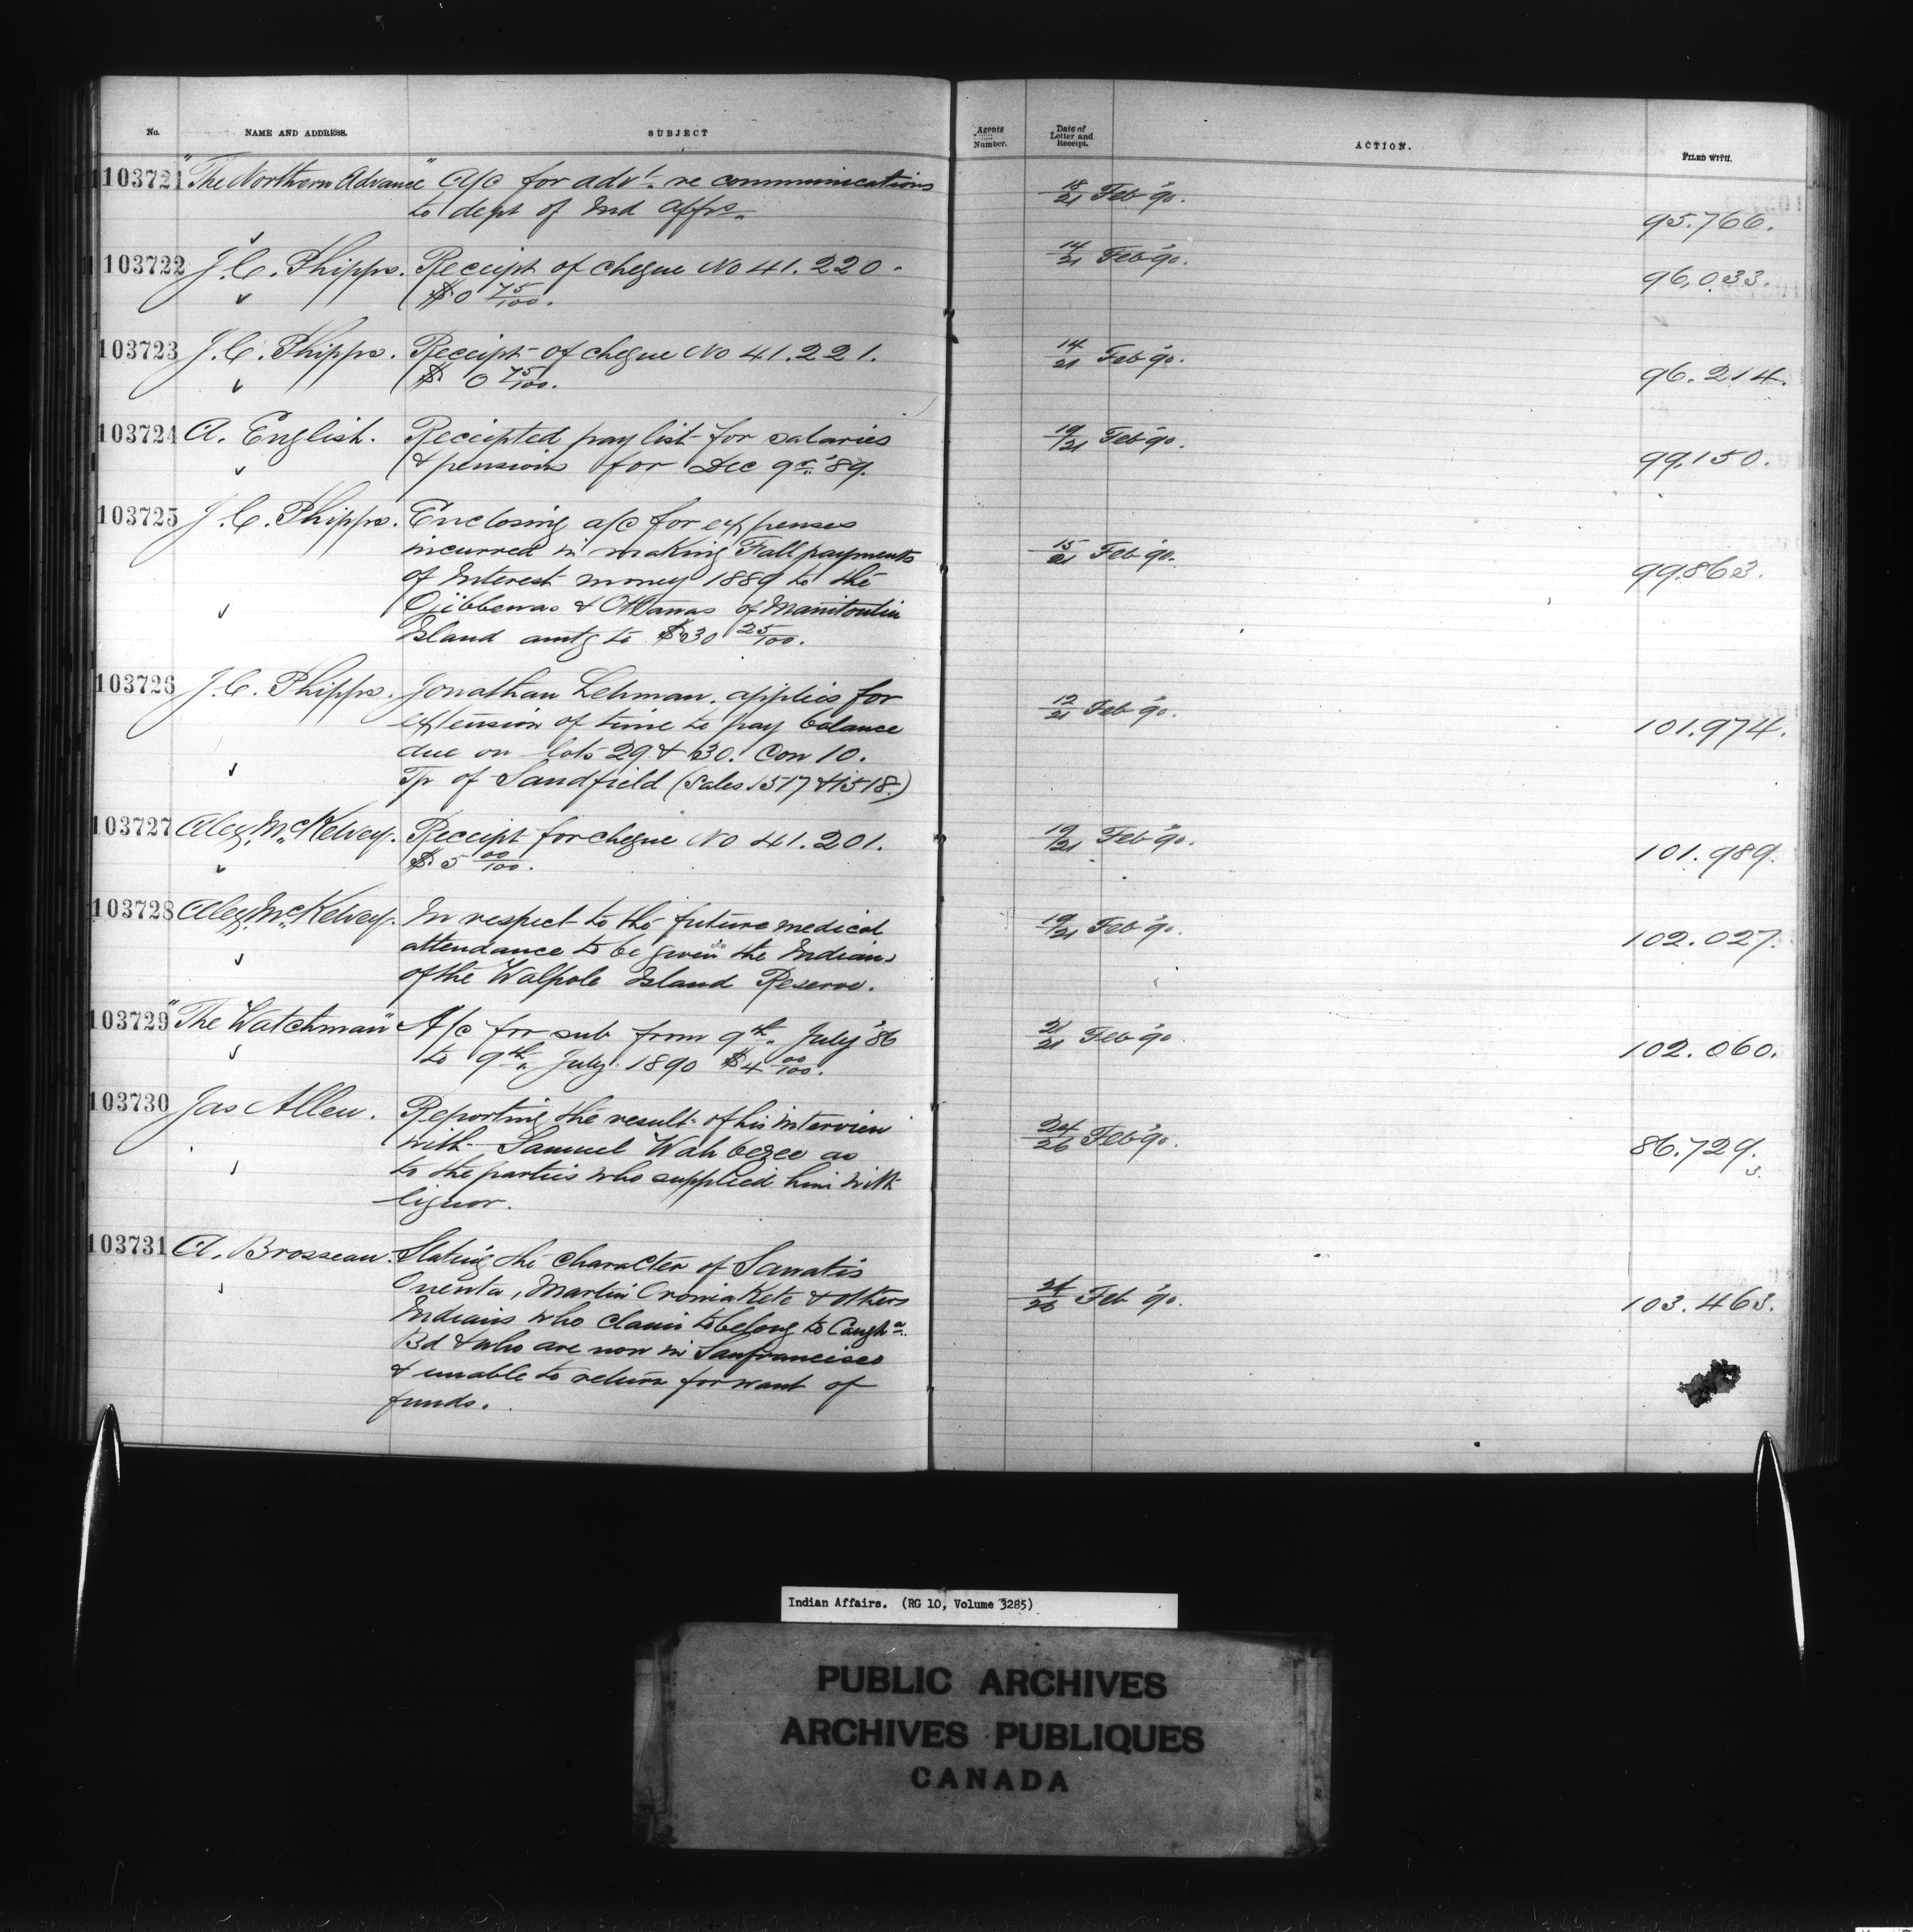 No. NAME AND ADDRESS. SUBJECT Agents Number. Date of Letter and Receipt. ACTION. FILED WITH.
103721 "The Northern Advance" A/c for advt. re communications 18/21 Feb '90.
to dept of Ind Affrs. 95.766.
103722 J. C. Phipps. Receipt of cheque No 41.220. 14/21 Feb '90.
$0 75/100. 96.033.
103723 J. C. Phipps. Receipt of cheque No 41.221. 14/21 Feb '90.
$ 0 75/100. 96.214.
103724 A. English. Receipted pay list for salaries 19/21 Feb '90.
& pensions for Dec qr. '89. 99.150.
103725 J. C. Phipps. Enclosing a/c for expenses
incurred in making Fall payments 15/21 Feb '90.
of Interest money 1889 to the 99.863.
Ojibbewas & Ottawas of Manitoulin
Island amtg to $30 25/100.
103726 J. C. Phipps. Jonathan Lehman. applies for 12/21 Feb '90.
extension of time to pay balance 101.974.
due on lots 29 & 30. Con 10.
Tp of Sandfield (Sales 1517 & 1518.)
103727 Alex. McKelvey. Receipt for cheque No 41.201. 19/21 Feb '90.
$5 00/100. 101.989.
103728 Alex. McKelvey. In respect to the future medical 19/21 Feb '90.
attendance to be given the Indians 102.027.
of the Walpole Island Reserve.
103729 "The Watchman" A/c for sub from 9th. July '86 21/21 Feb '90
to 9th. July 1890 $4 00/100. 102.060.
103730 Jas Allen. Reporting the result of his interview 24/26 Feb '90.
with Samuel Wahbezee as 86.729.
to the parties who supplied him with 3.
liquor.
103731 A. Brosseau. Stating the character of Sawatis
Onenta, Martin Oroniakete & others 24/26 Feb '90. 103.463.
Indians who claim to belong to Caugha.
Bd & who are now in Sanfrancisco
& unable to return for want of
funds.
Indian Affairs. (RG 10, Volume 3285)
PUBLIC ARCHIVES
ARCHIVES PUBLIQUES
CANADA